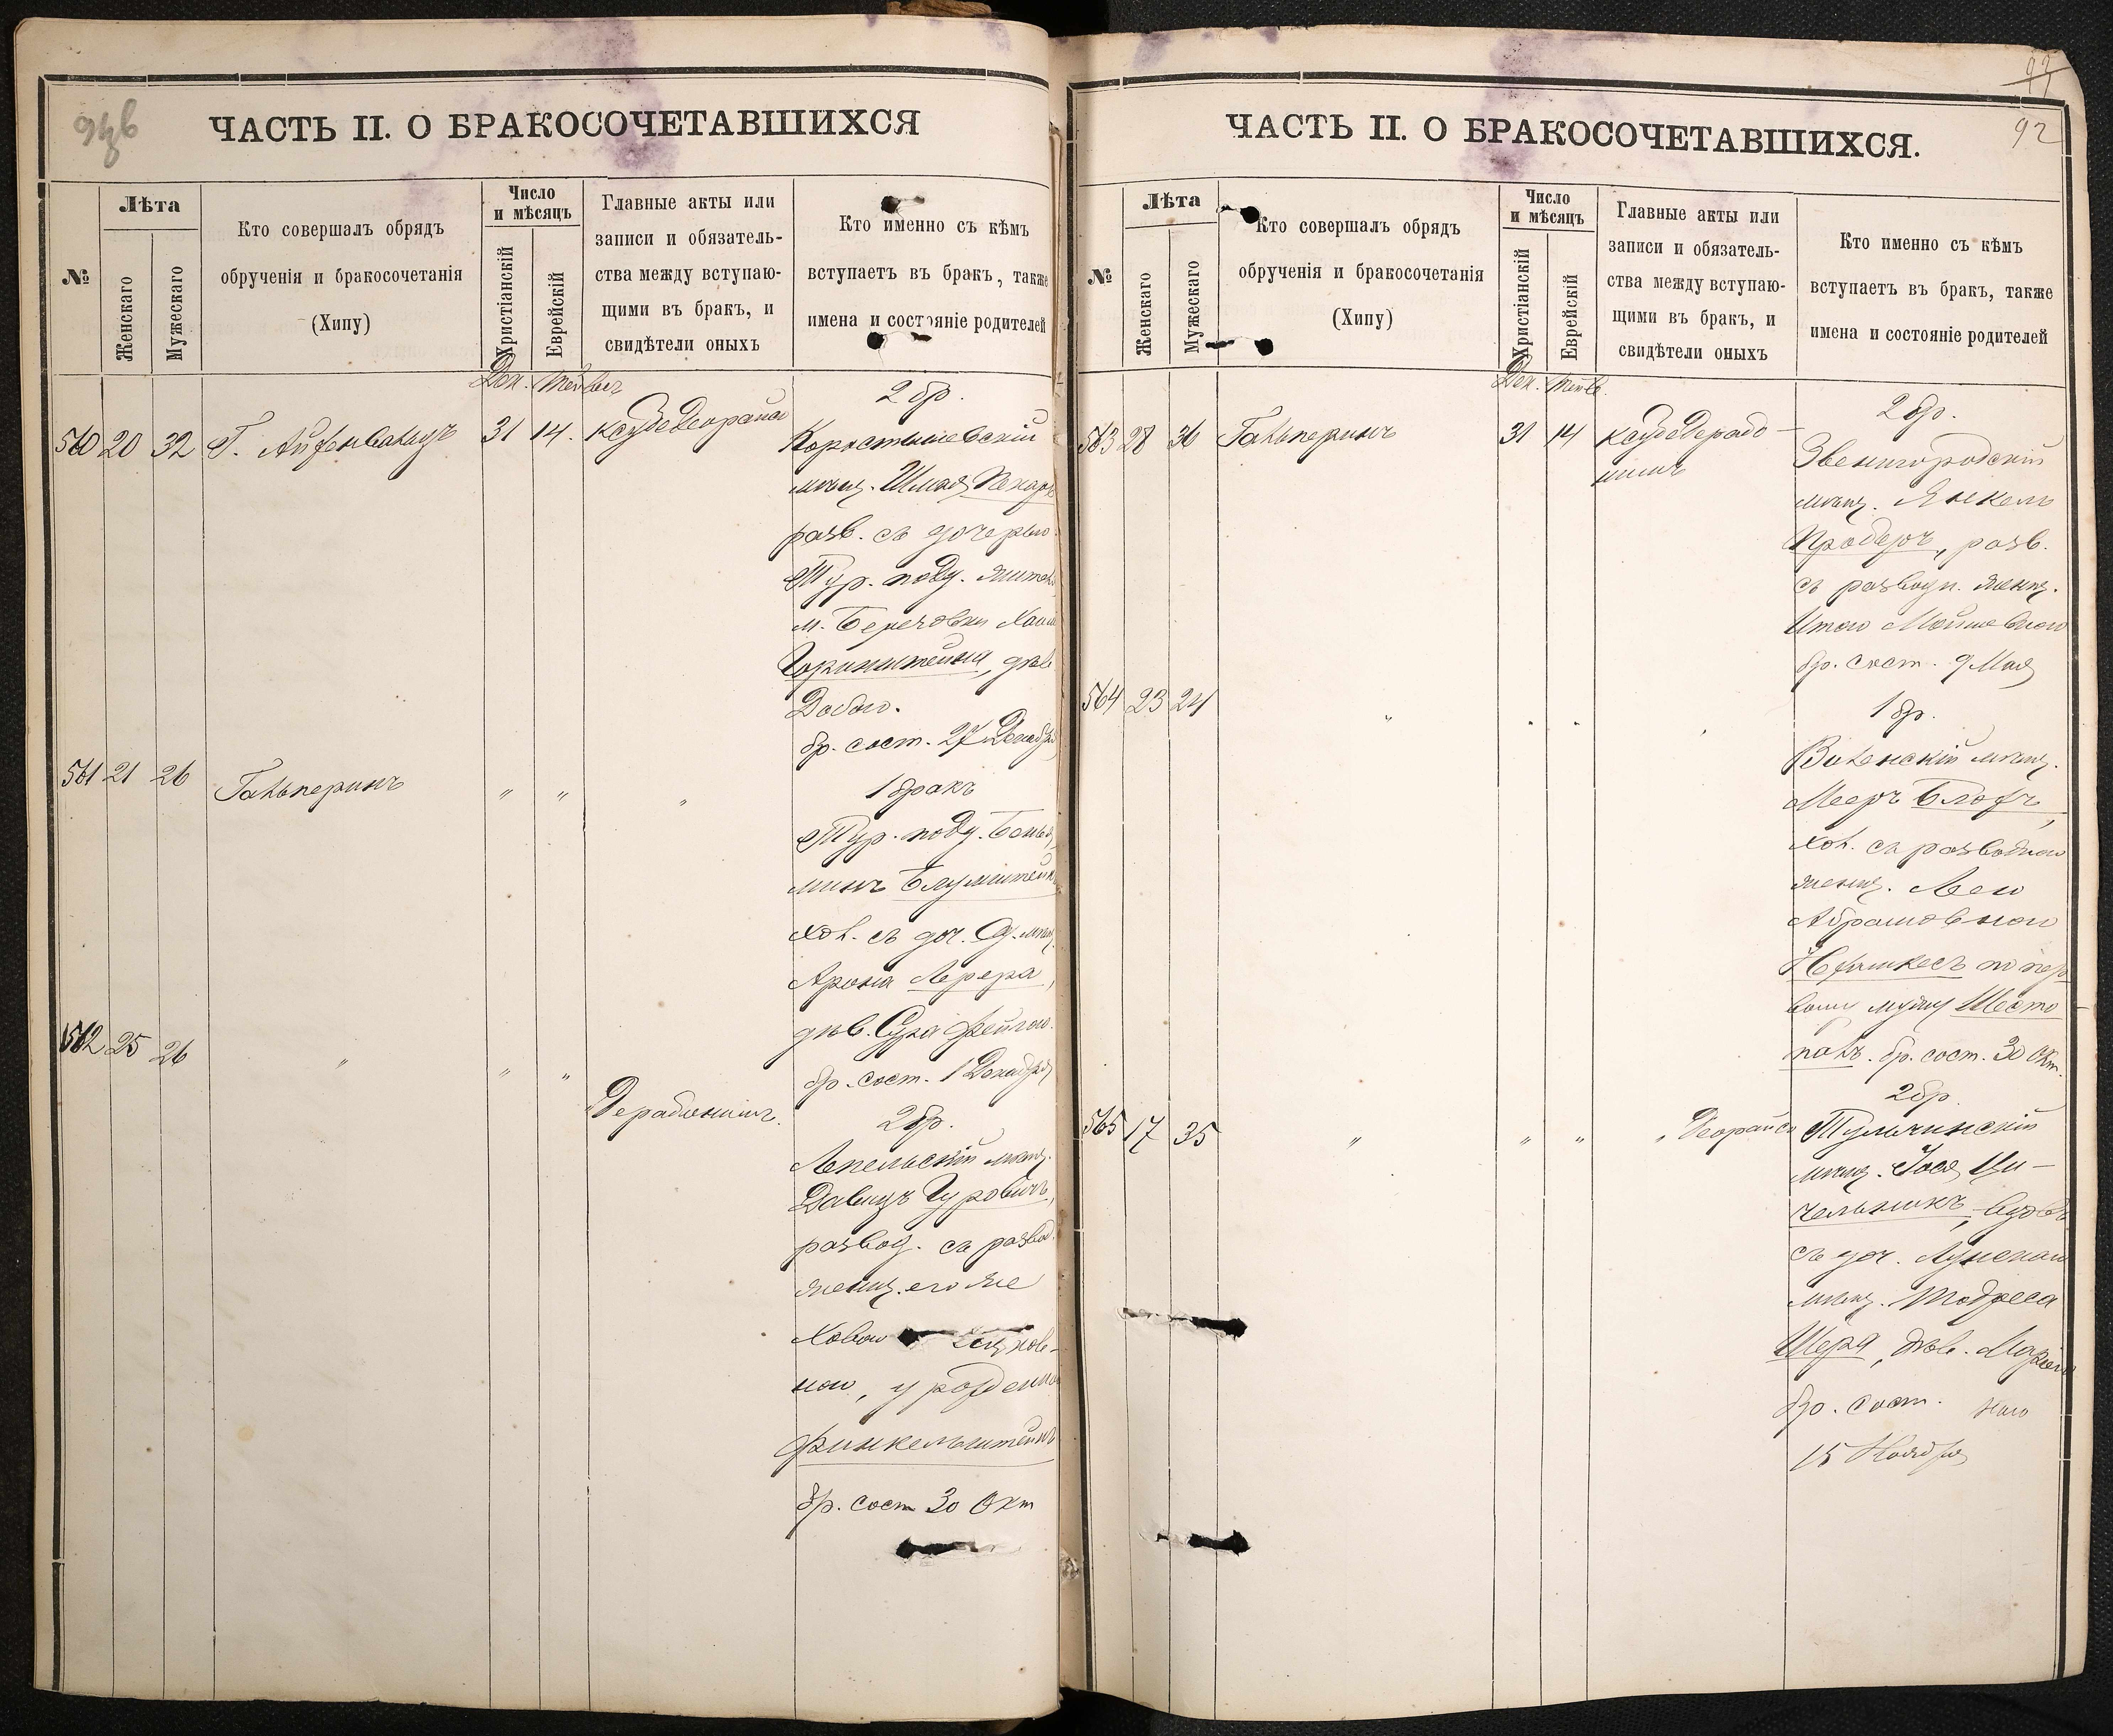 ЧАСТЬ II. О БРАКОСОЧЕТАВШИХСЯ
№
Лѣта
Женскаго
Мужескаго
Кто совершалъ обрядъ
обрученія и бракосочетанія
(Хипу)
Число
и мѣсяцъ
Христіанскій
Еврейскій
Главные акты или
записи и обязатель-
ства между вступаю-
щими въ бракъ, и
свидѣтели оныхъ
Кто именно съ кѣмъ
вступаетъ въ бракъ, также
имена и состояніе родителей
Дек.
560 20 32 Г. Айзенвальдъ 31 14.
2 бр.
Коростышевскій
мѣщ. Шмая Пекарь
разв. съ дочерью
Тур. подд. жител
м. Березовки Хаим
Горинштейна, дѣв
Добою.
бр. сост. 27 Декабря
561 21 26 Гальперинъ " " "
1 бракъ
Тур. подд. Бенья
минъ Блумштейнъ
хол. съ доч. Од. мѣщ.
Арона Лерера,
дѣв. Сура Фейгою.
бр. сост. 1 Декабря
562 25 26 " " "
2 бр.
Лепельскій мѣщ.
Давидъ Гуровичъ,
развод. съ развод.
женщ. его же
Ховою
ною, урожденною
Финкельштейнъ
бр. сост 30 Окт
92
ЧАСТЬ II. О БРАКОСОЧЕТАВШИХСЯ.
№
Лѣта
Женскаго
Мужескаго
Кто совершалъ обрядъ
обрученія и бракосочетанія
(Хипу)
Число
и мѣсяцъ
Христіанскій
Еврейскій
Главные акты или
записи и обязатель-
ства между вступаю-
щими въ бракъ, и
свидѣтели оныхъ
Кто именно съ кѣмъ
вступаетъ въ бракъ, также
имена и состояніе родителей
Дек.
563 28 36 Гальперинъ 31 14
2 бр.
Звенигородскій
мѣщ. Янкель
Продеръ, разв.
съ разводн. женщ.
Итою Мойшевною
бр. сост. 9 Мая
564 23 24 " " "
1 бр.
Виленскій мѣщ.
Мееръ Блохъ,
хол. съ разводною
женщ. Леею
Абрамовною
по пер
вому мужу Шесто
палъ. бр. сост. 30 Окт.
565 17 35 " " " "
2 бр.
Тульчинскій
мѣщ. Іося Чи-
чельникъ, вдовъ
съ доч.
мѣщ. Тодреса
Шера, дѣв.
бр. сост.
15 Ноября